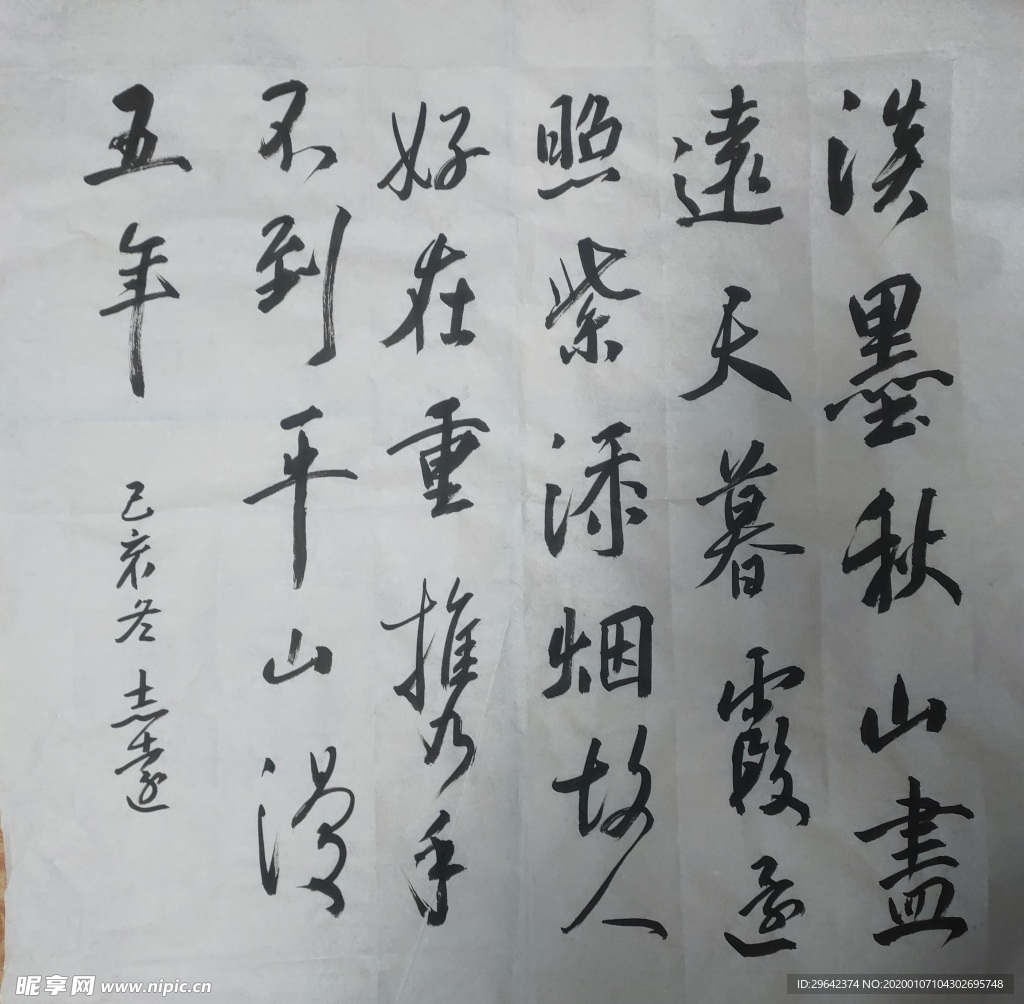 淡墨秋山盡
遠天暮霞還
照紫添烟故人
好在重攜手
不到平山謾
五年
己亥冬 志遠
昵享网 www.nipic.cn
ID:29642374 NO:20200107104302695748